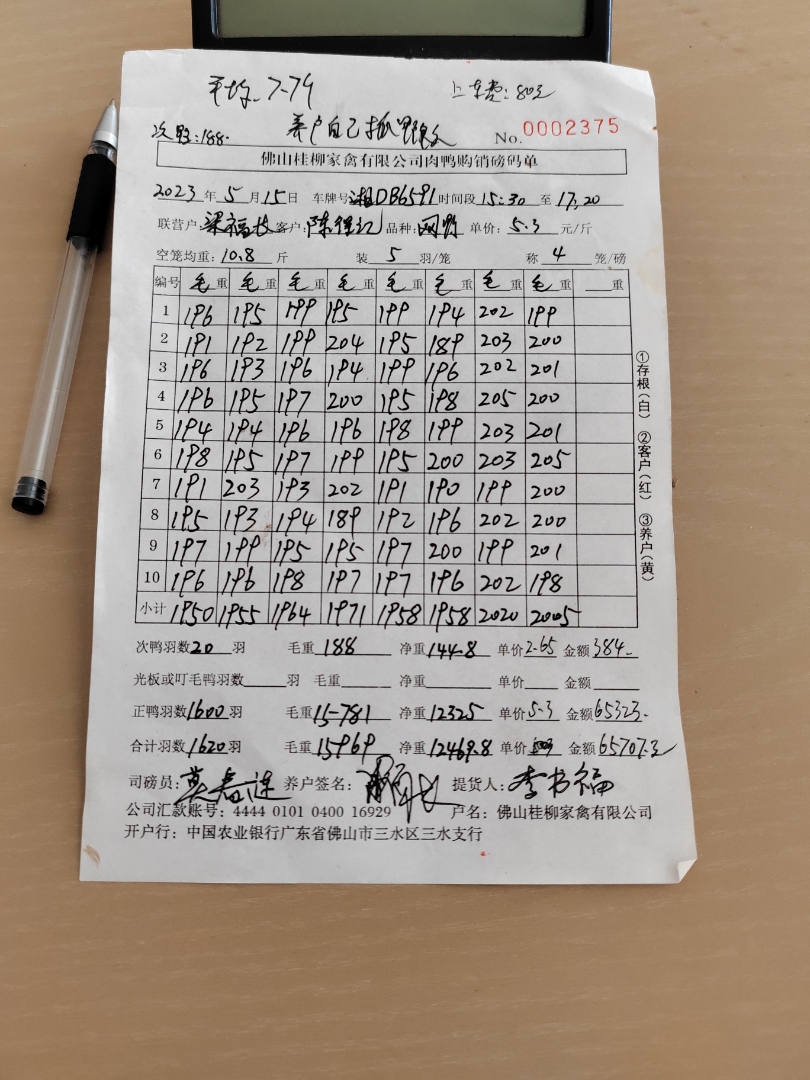 平均 7.79 上车费: 80元
次鸭: 188. 养户自己抓
No. 0002375
佛山桂柳家禽有限公司肉鸭购销磅码单
2023年5月15日 车牌号湘DB6591 时间段 15:30 至 17:20
联营户: 梁福 客户: 陈 品种: 单价: 5.3 元/斤
空笼均重: 10.8 斤 装 5 羽/笼 称 4 笼/磅
编号 毛重 毛重 毛重 毛重 毛重 毛重 毛重 毛重 重
1 196 195 199 195 199 194 202 199
2 191 192 199 204 195 189 203 200
3 196 193 196 194 199 196 202 201
4 196 195 197 200 195 198 205 200
5 194 194 196 196 198 199 203 201
6 198 195 197 199 195 200 203 205
7 191 203 193 202 191 190 199 200
8 195 193 194 189 192 196 202 200
9 197 199 195 195 197 200 199 201
10 196 196 198 197 197 196 202 198
小计 1950 1955 1964 1971 1958 1958 2020 2005
次鸭羽数 20 羽 毛重 188 净重 144.8 单价 2.65 金额 384.
光板或叮毛鸭羽数 羽 毛重 净重 单价 金额
正鸭羽数 1600 羽 毛重 15781 净重 12325 单价 5.3 金额 65323.
合计羽数 1620 羽 毛重 15969 净重 12469.8 单价 金额 65707.3
司磅员: 莫春连 养户签名: 提货人: 李书福
公司汇款账号: 4444 0101 0400 16929 户名: 佛山桂柳家禽有限公司
开户行: 中国农业银行广东省佛山市三水区三水支行
①存根(白) ②客户(红) ③养户(黄)